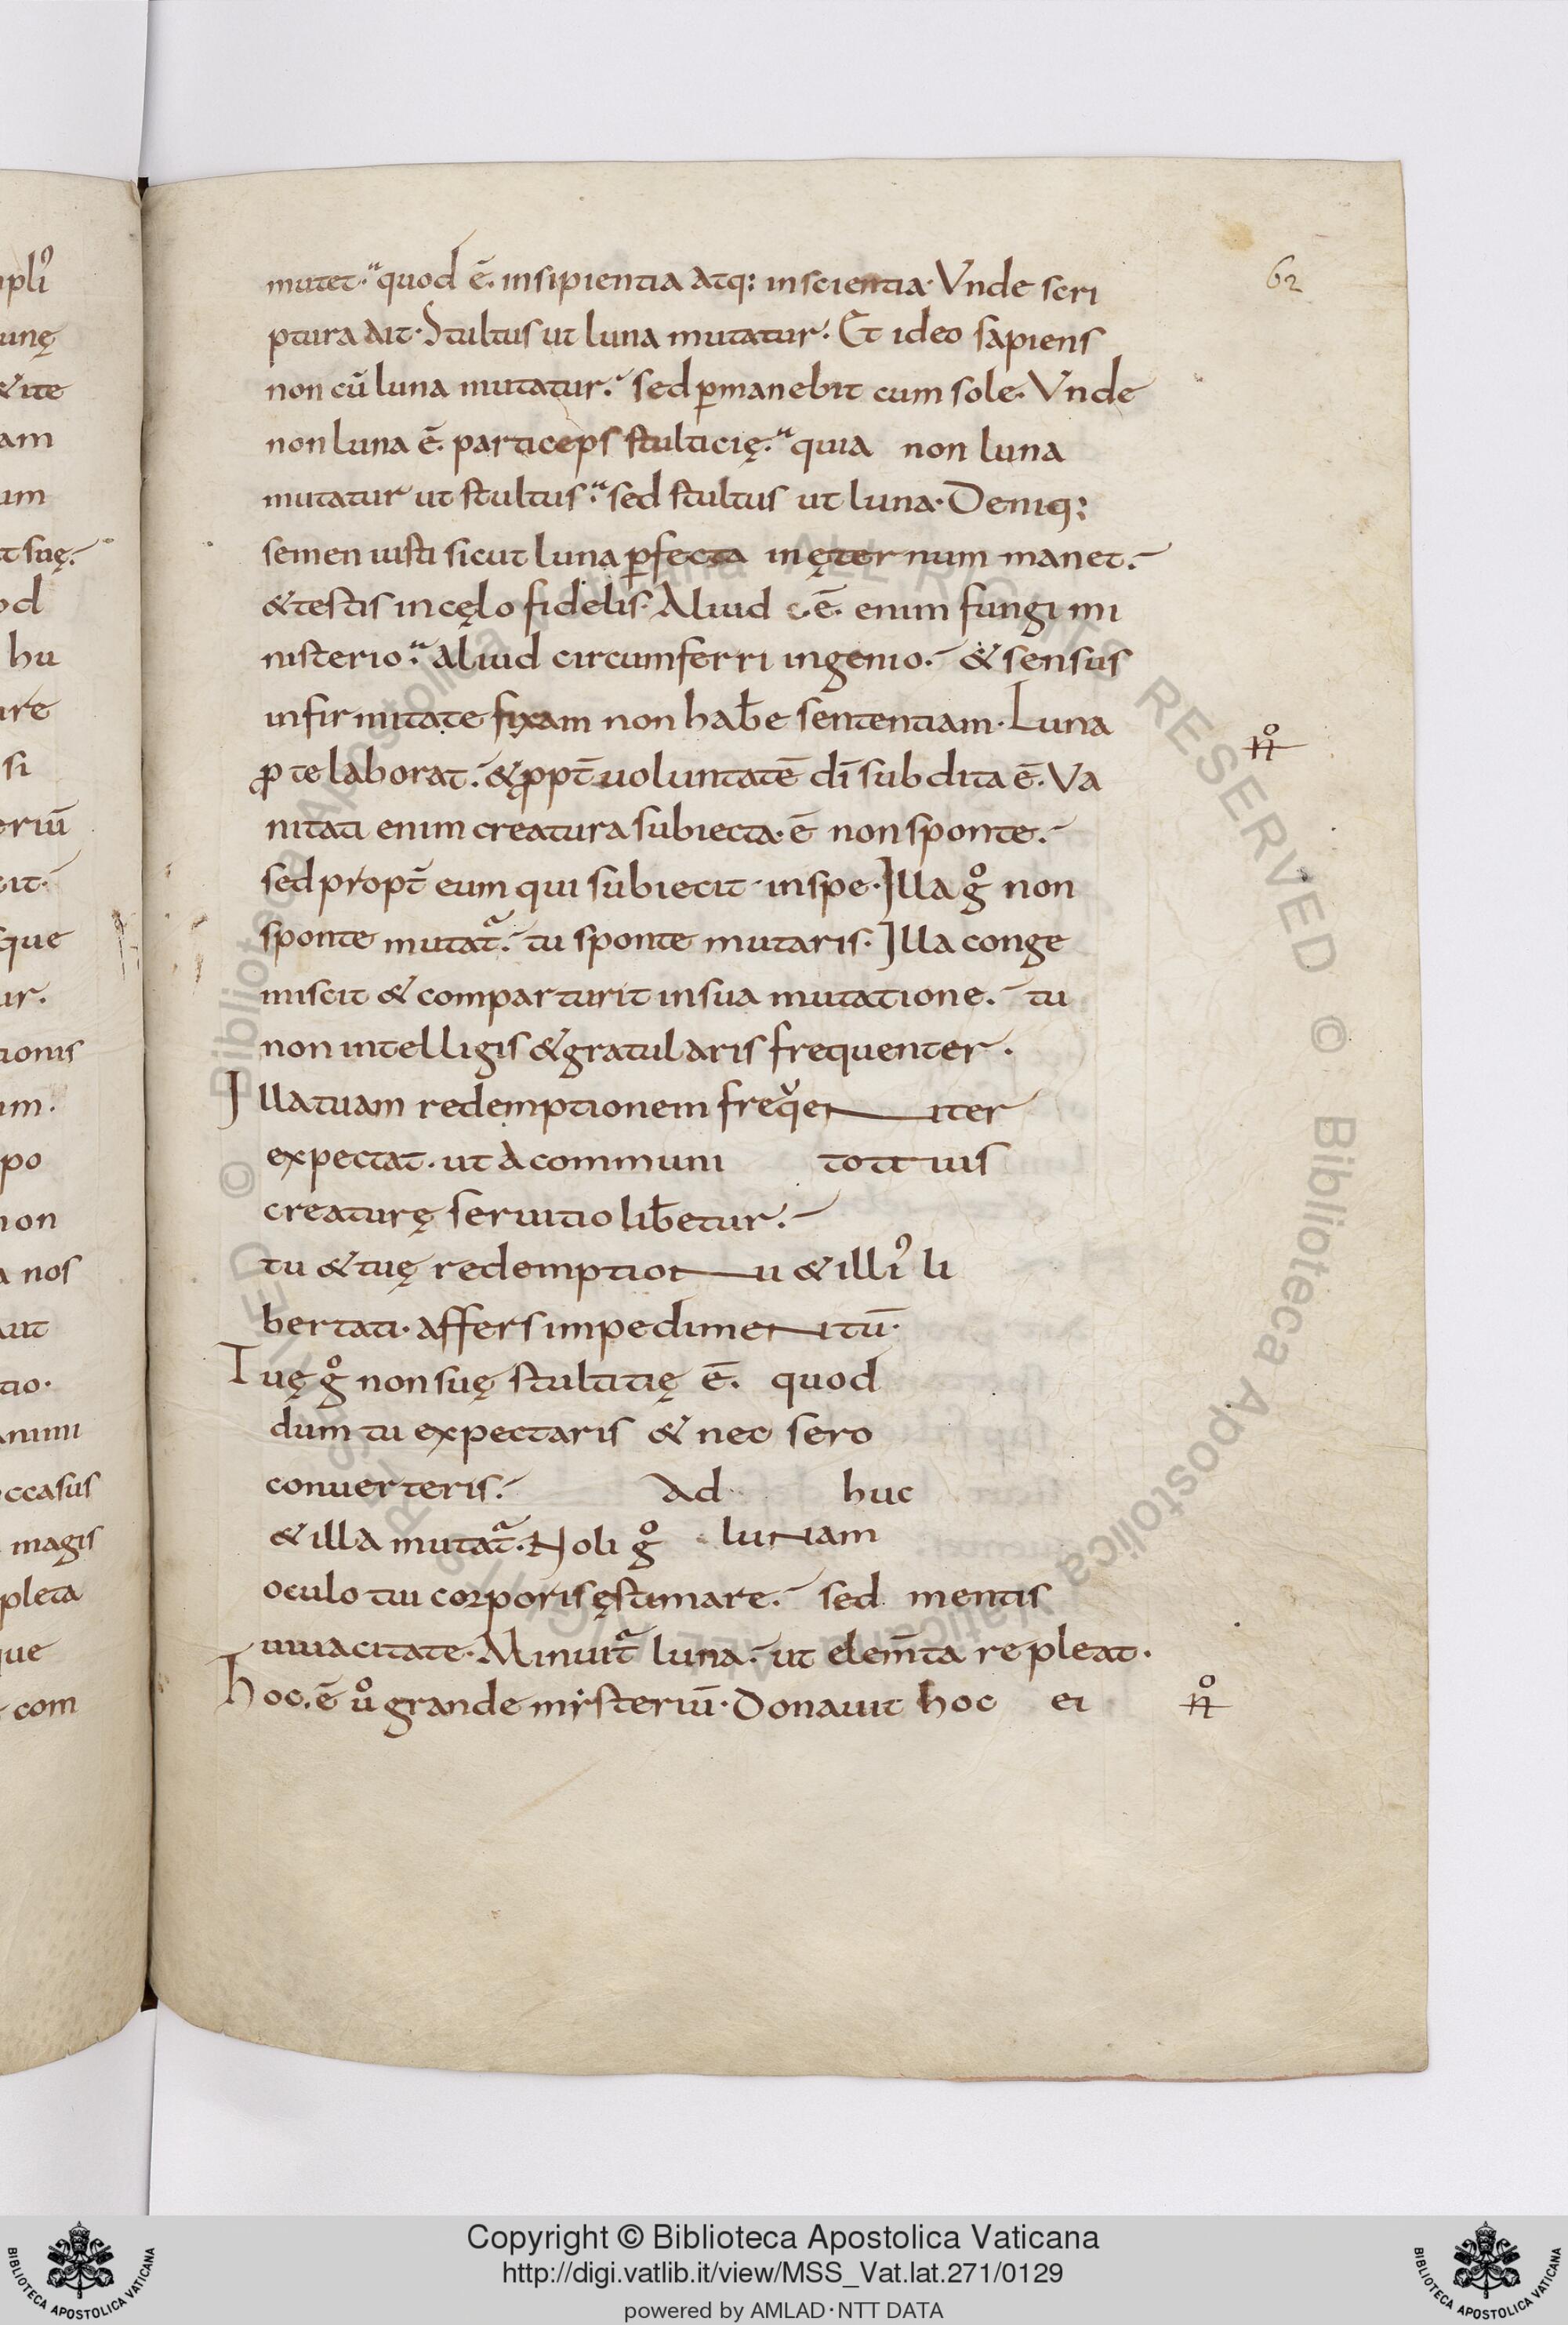 mutet. quod ē. insipientia atq: inscientia. Vnde scri
ptura ait. Stultus ut luna mutatur. Et ideo sapiens
non cū luna mutatur. sed p̱manebit cum sole. Vnde
non luna ē. particeps stulticię. quia non luna
mutatur ut stultus. sed stultus ut luna. Deniq:
semen iusti sicut luna p̱fecta in ęternum manet.
& testis in cęlo fidelis. Aliud ē. enim fungi mi
nisterio. aliud circumferri ingenio. & sensus
infirmitate fixam non hab̄e sententiam. Luna
ꝓ te laborat. & ꝓpt̄ uoluntatē dī subdita ē. Va
nitati enim creatura subiecta. ē non sponte.
sed propt̄ eum qui subiecit in spe. Illa gͦ non
sponte mutatᷓ. tu sponte mutaris. Illa conge
miscit & comparturit in sua mutatione. tu
non intelligis & gratularis frequenter.
Illa tuam redemptionem freq̌enter
expectat. ut a communi totius
creaturę seruitio lib̄etur.
tu & tuę redemptioni & illiꝰ li
bertati. affers impedimentū.
Tuę gͦ non suę stultitię ē. quod
dum tu expectaris & nec sero
conuerteris. Ad huc
& illa mutatᷓ. Noli gͦ lunam
oculo tui corporis ęstimare. sed mentis
uiuacitate. Minuitᷓ luna. ut elem̄ta repleat.
Hoc. ē uͦ grande mẏsteriū. Donauit hoc ei
62
plıꝰ
unę
& ite
am
um
t suę.
od
hu
are
si
eriū
cit.
que
ur.
tionis
um.
po
non
a nos
aut
tio.
animi
occasus
magis
pleta
que
com
Copyright © Biblioteca Apostolica Vaticana
http://digi.vatlib.it/view/MSS_Vat.lat.271/0129
powered by AMLAD·NTT DATA
BIBLIOTECA APOSTOLICA VATICANA
BIBLIOTECA APOSTOLICA VATICANA